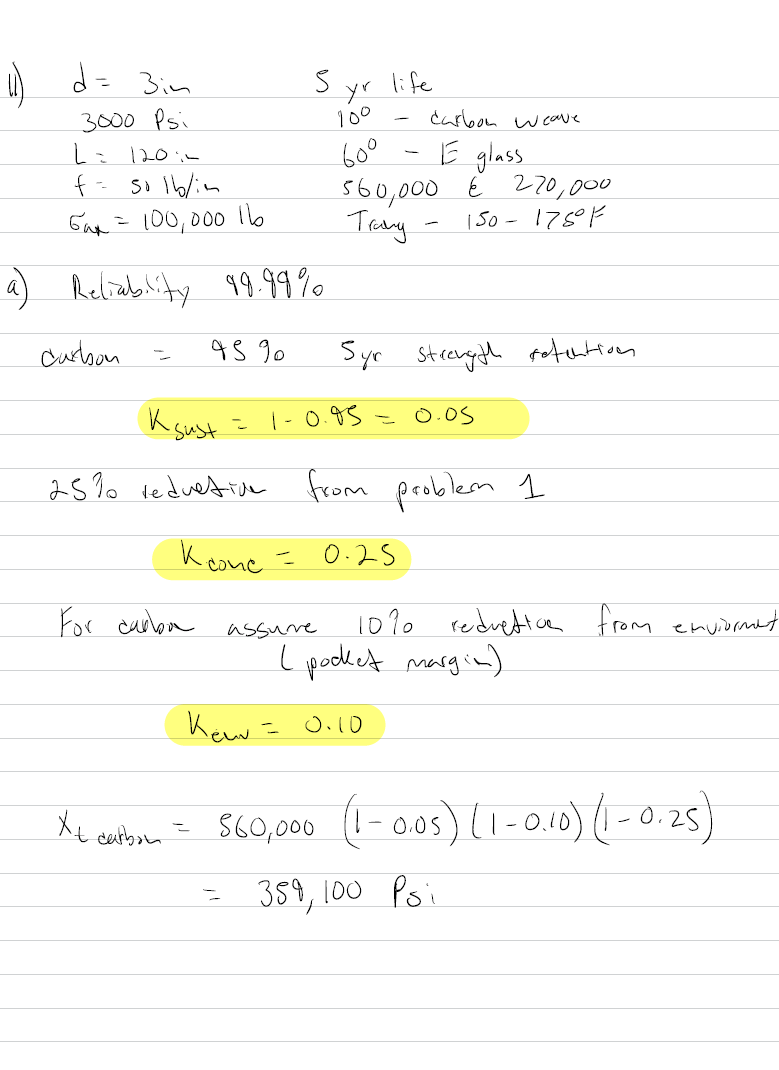 11) d = 3in 5 yr life
3000 Psi 10° - carbon weave
L = 120 in 60° - E glass
f = 50 lb/in 560,000 & 270,000
= 100,000 lb - 150 - 175°F
a) Reliability 99.99%
carbon = 95% 5yr strength retention
Ksust = 1 - 0.95 = 0.05
25% reduction from problem 1
Kconc = 0.25
For carbon assume 10% reduction from enviornment
(pocket margin)
Kenv = 0.10
Xt carbon = 560,000 (1 - 0.05) (1 - 0.10) (1 - 0.25)
= 359,100 Psi